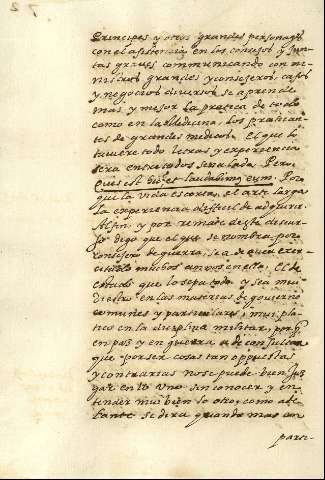 Principes y otros grandes personages
con el asistencia en los consejos y Jun
tas graves communicando con mi
nistros grandes y consejeros, casos
y negocios diversos se aprende
mas y mejor la practica de todo
como en la Medicina, los practican
tes de grandes medicos. El que lo
tuviere todo letras y experiencia
sera entre todos señalado. Pero
Quis est hic, et laudabimus eum. Por
que la vida es corta, el arte larga
la experiencia dificil de adquirir.
Al fin, y por remate deste discur
so digo que el que se nombra por
consejero de guerra, sea de que exer
cito muchos annos en ella. El de
estado que lo sepa todo y sea mui
diestro en las materias de govierno
comunes y particulares, mui pla
tico en la disciplina militar, porq
en paz y en guerra a de consultar
que por ser cosas tan oppuestas
y contrarias no se puede bien juz
gar en lo uno sin conocer y en
tender mui bien lo otro, como ade
lante se dira quando mas an
parte